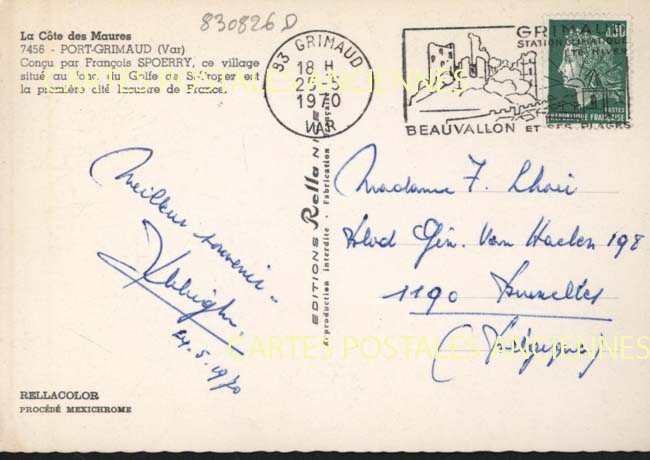 830826 D
La Côte des Maures
7456 - PORT-GRIMAUD (Var)
Conçu par François SPOERRY, ce village
situé au fond du Golfe de St-Tropez est
la première cité lacustre de France.
83 GRIMAUD
18 H
26-5
1970
VAR
GRIMAUD
STATION CLIMATIQUE
ÉTÉ-HIVER
BEAUVALLON ET SES PLAGES
0,30
POSTES
RÉPUBLIQUE FRANÇAISE
CARTES POSTALES ANCIENNES
Meilleur souvenir
24.5.1970
EDITIONS Rella NICE
Reproduction interdite - Fabrication française
Madame F.
Blvd Gén. Van Haelen 198
1190 Bruxelles
(Belgique)
CARTES POSTALES ANCIENNES
RELLACOLOR
PROCÉDÉ MEXICHROME